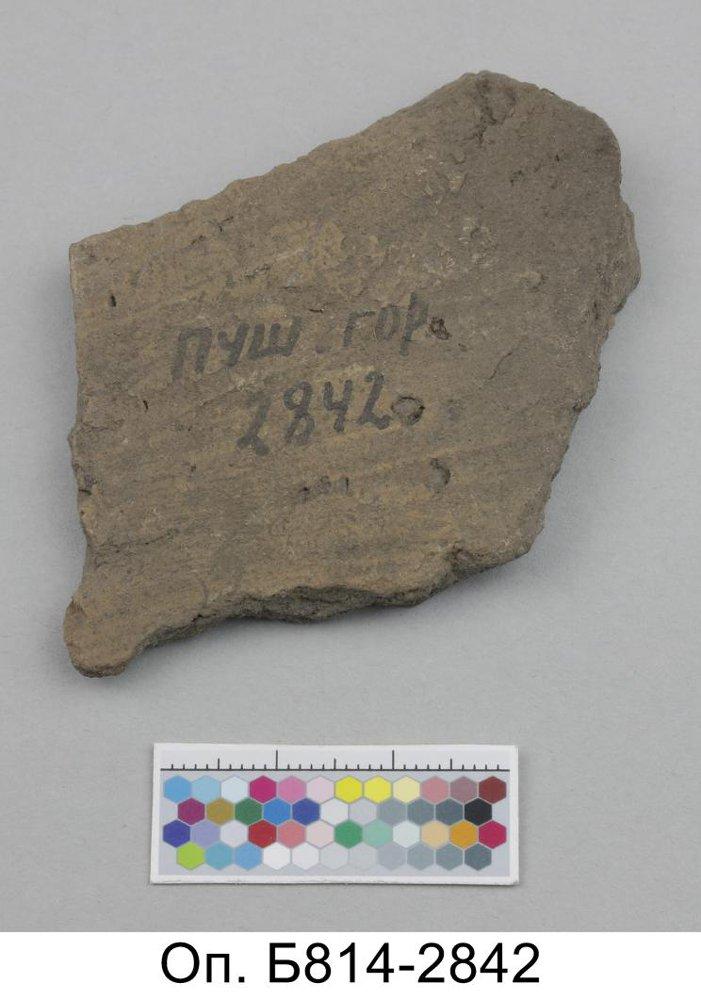 ПУШ. ГОР.
2842
Оп. Б814-2842